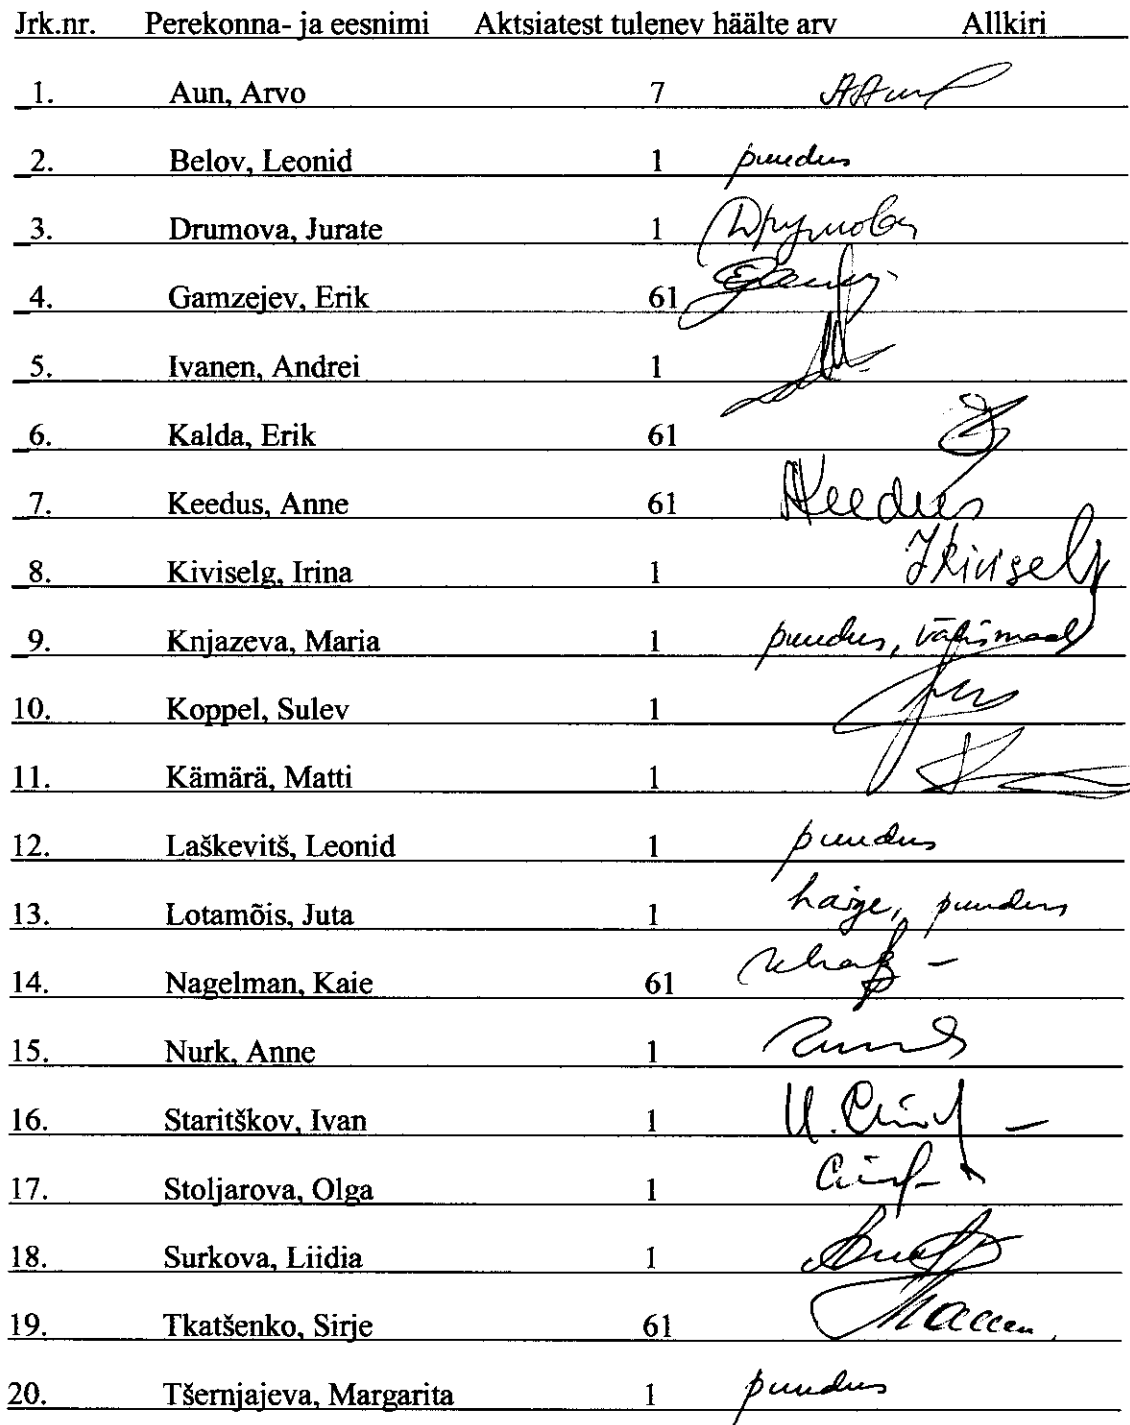 Jrk.nr. Perekonna- ja eesnimi Aktsiatest tulenev häälte arv Allkiri
1. Aun, Arvo 7
2. Belov, Leonid 1 puudus
3. Drumova, Jurate 1 Друмова
4. Gamzejev, Erik 61
5. Ivanen, Andrei 1
6. Kalda, Erik 61
7. Keedus, Anne 61 AKeedus
8. Kiviselg, Irina 1 IKiviselg
9. Knjazeva, Maria 1 puudus, välismaal
10. Koppel, Sulev 1
11. Kämärä, Matti 1
12. Laškevitš, Leonid 1 puudus
13. Lotamõis, Juta 1 haige, puudus
14. Nagelman, Kaie 61
15. Nurk, Anne 1
16. Staritškov, Ivan 1
17. Stoljarova, Olga 1
18. Surkova, Liidia 1
19. Tkatšenko, Sirje 61
20. Tšernjajeva, Margarita 1 puudus